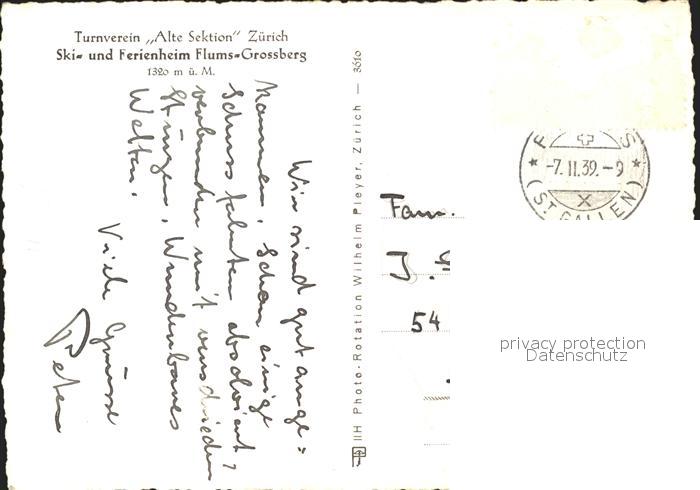 Turnverein „Alte Sektion" Zürich
Ski- und Ferienheim Flums-Grossberg
1320 m ü. M.
Wir sind gut ange=
kommen. Schon einige
Schuss fahrten absolviert,
verbunden mit verschieden
Stürzen. Wunderbares
Wetter.
Viele Grüsse
Peter
IIH Photo-Rotation Wilhelm Pleyer, Zürich — 3610
-7.II.39.-9
(ST. GALLEN)
X
Fam.
J.
54
privacy protection
Datenschutz